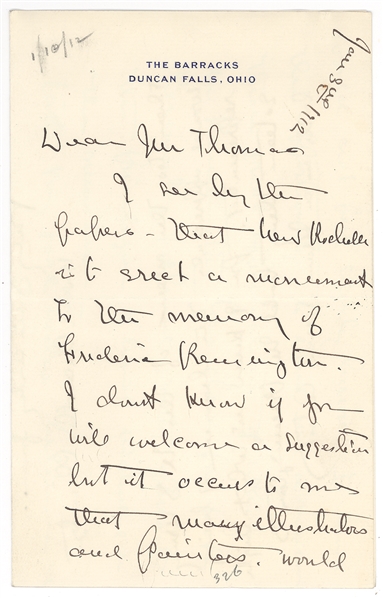 1/10/12
Jan
1912
THE BARRACKS
DUNCAN FALLS, OHIO
Dear Mr Thomas
I see by the
papers - that New Rochelle
is to erect a monument
to the memory of
Frederic Remington.
I dont know if you
will welcome a suggestion
but it occurs to me
that many illustrators
and painters. would
326